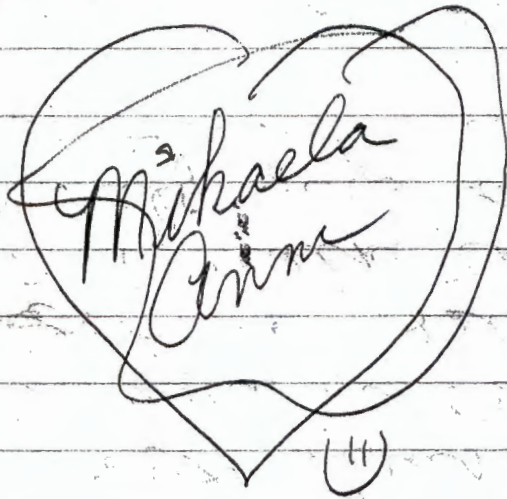 Mikaela
Ann